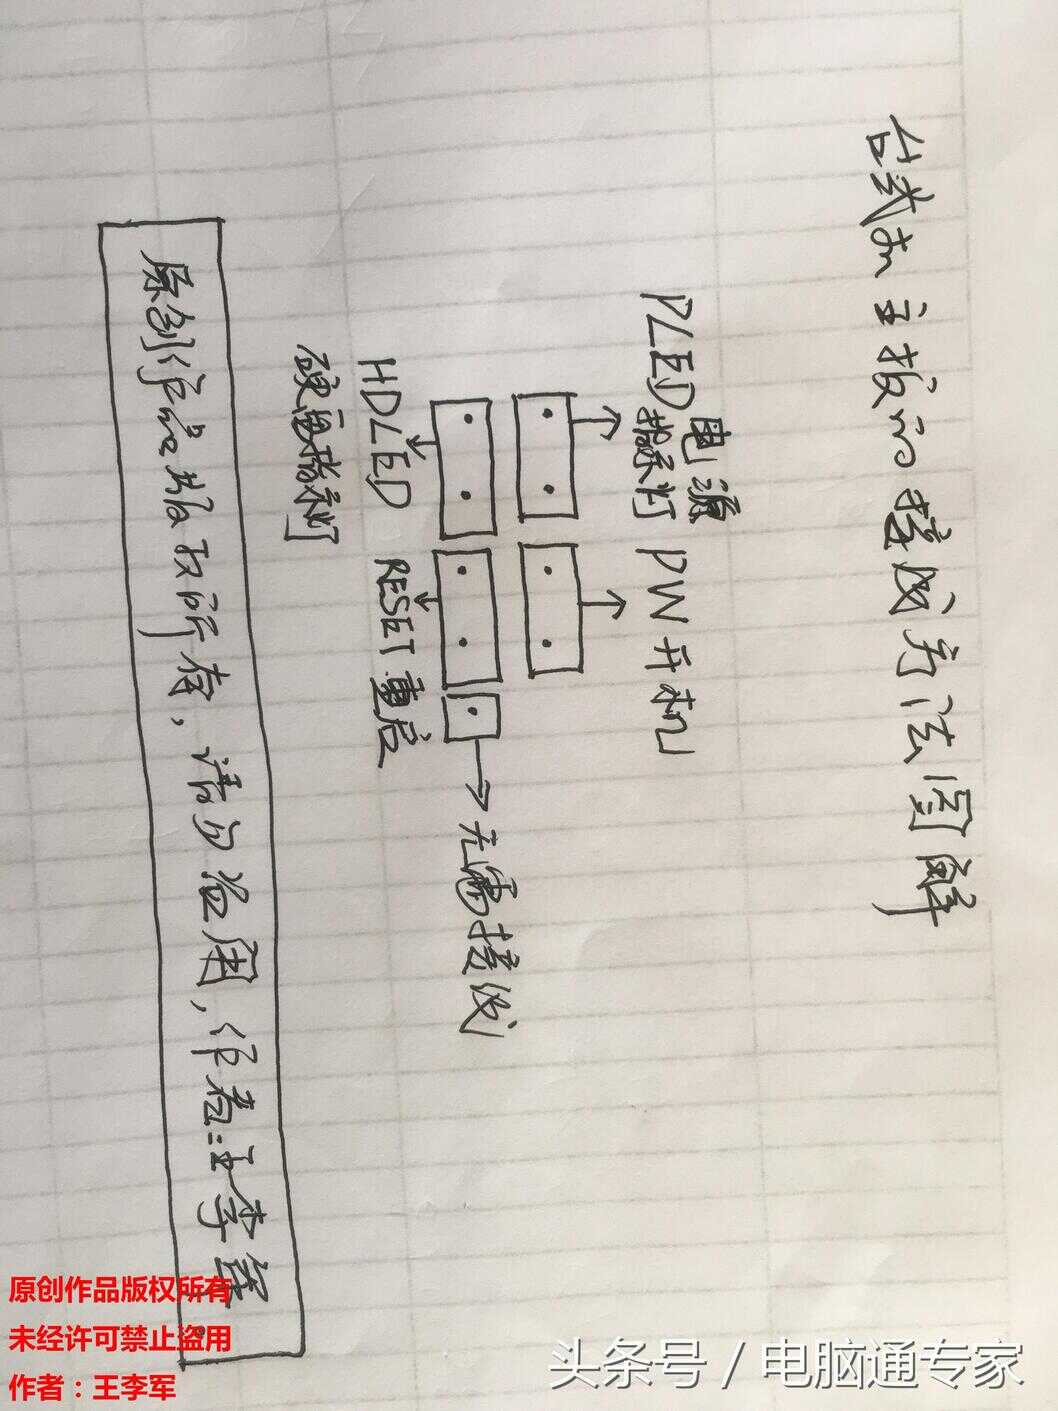 台式机主板的接线方法图解
PLED 电源
指示灯
PW 开机
HDLED
硬盘指示灯
RESET 重启
无需接线
原创作品版权所有，请勿盗用，作者：王李军
原创作品版权所有
未经许可禁止盗用
作者：王李军
头条号 / 电脑通专家